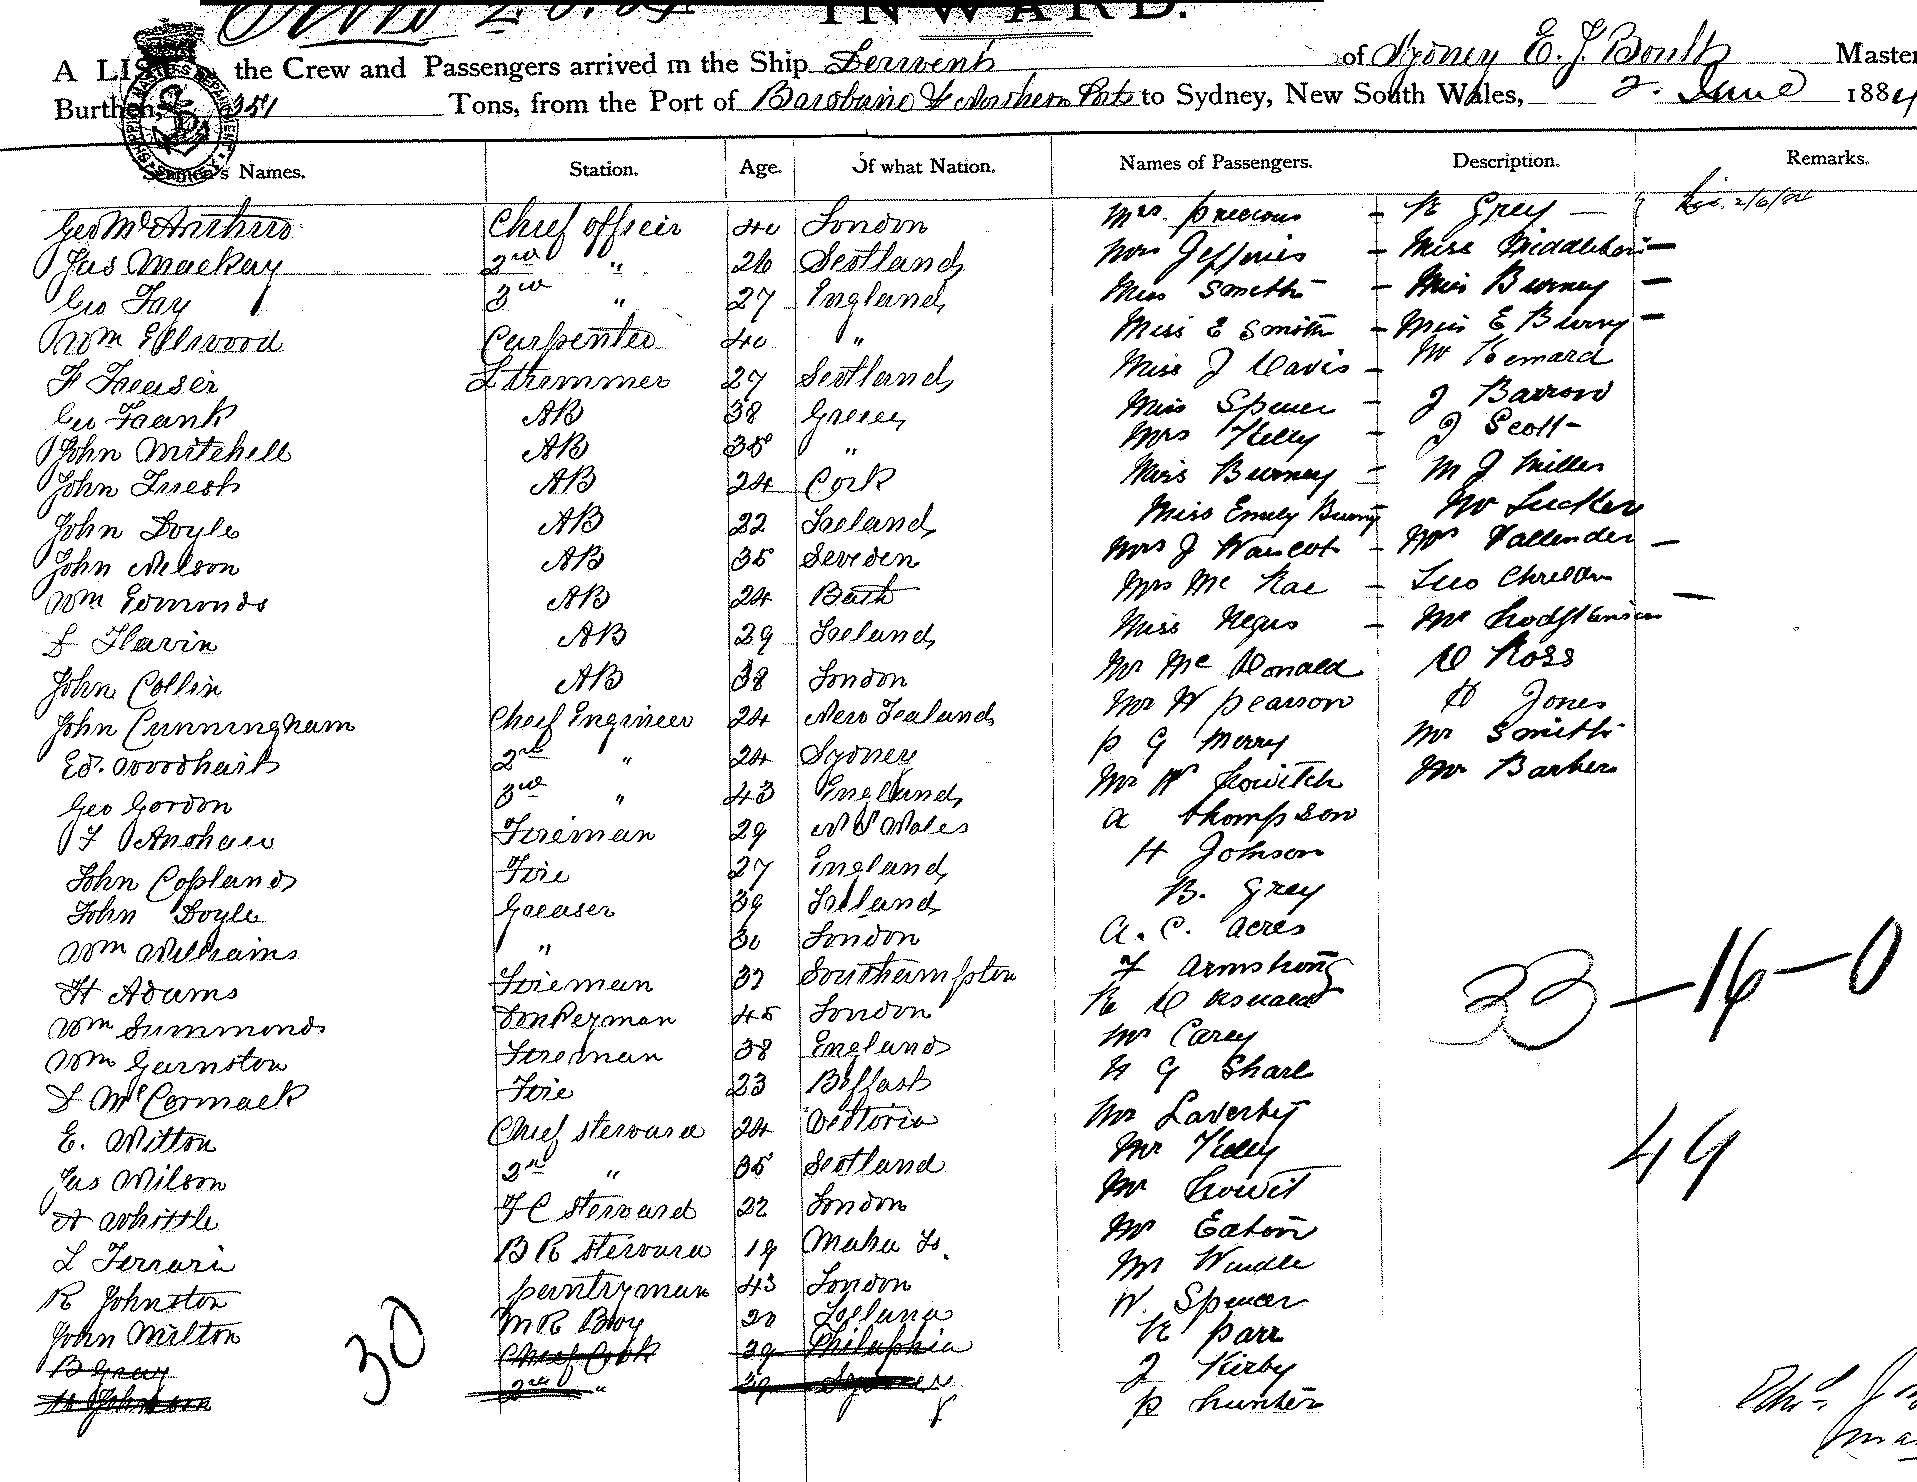 INWARD.
A LIST the Crew and Passengers arrived in the Ship Derwent of Sydney E. J. Boult Master
Burthen, 251 Tons, from the Port of Brisbane & Northern Ports to Sydney, New South Wales, 2. June 1884
Seamen's Names. Station. Age. Of what Nation. Names of Passengers. Description. Remarks.
Geo McArthur Chief officer 40 London Mrs. Precious - R Grey -
Jas Mackay 2nd " 26 Scotland Mrs Jefferies - Miss -
Geo Fay 3rd " 27 England Miss Smith - Miss Burney -
Wm Ellwood Carpenter 40 " Miss E Smith - Miss E Burney -
F Freaser 27 Scotland Miss J Davis - Mr Kemard
Geo Frank AB 38 Greece Miss Spencer - J Barrow
John Mitchell AB 35 " Mrs Kelly - J Scott -
John AB 24 Cork Miss Burney - M J Miller
John Doyle AB 22 Ireland Miss Emily Burney - Mr Tucker
John Nelson AB 35 Sweden Mrs J - Mr Vallender -
Wm Edmonds AB 24 Bath Mrs McRae - Two Children
D Flavin AB 29 Ireland Miss Negus - Mr
John Collin AB 38 London Mr McDonald D Ross
John Cunningham Chief Engineer 24 New Zealand Mr W Pearson D Jones
Ed. 2nd " 24 Sydney P G Merry Mr Smith
Geo Gordon 3rd " 43 England Mr W Howitch Mr Barker
F Fireman 29 N S Wales A Thompson
John Copland Fire 27 England H Johnson
John Doyle Greaser 39 Ireland B. Grey
Wm Williams " 30 London A. C. Acres
H Adams Fireman 37 Southampton F Armstrong
Wm Summonds Donkeyman 45 London R D
Wm Garnston Fireman 38 England Mr Carey
D McCormack Fire 23 Belfast H G Sharl
E. Witton Chief Steward 24 Victoria Mr Laverty
Jas Wilson 2nd " 35 Scotland Mr Kelly
A Whittle F C Steward 22 London Mr Howit
L Ferrari B R Steward 19 Mr Eaton
R Johnston Pantryman 43 London Mr Windle
John Milton M R Boy 20 W. Spencer
B Gray Chief Cook 39 Philaphia R Parr
H Johnson 2nd " 39 Sydney J Kirby
P Hunter
33 - 16 - 0
49
30